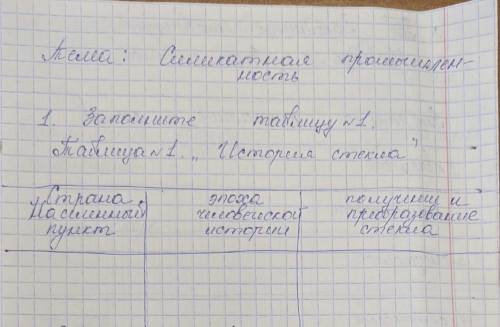 Тема: Силикатная промышлен-
ность
1. Запомните таблицу №1.
Таблица №1. „История стекла"
Страна, эпоха получение и
населенный человейской преобразование
пункт истории стекла